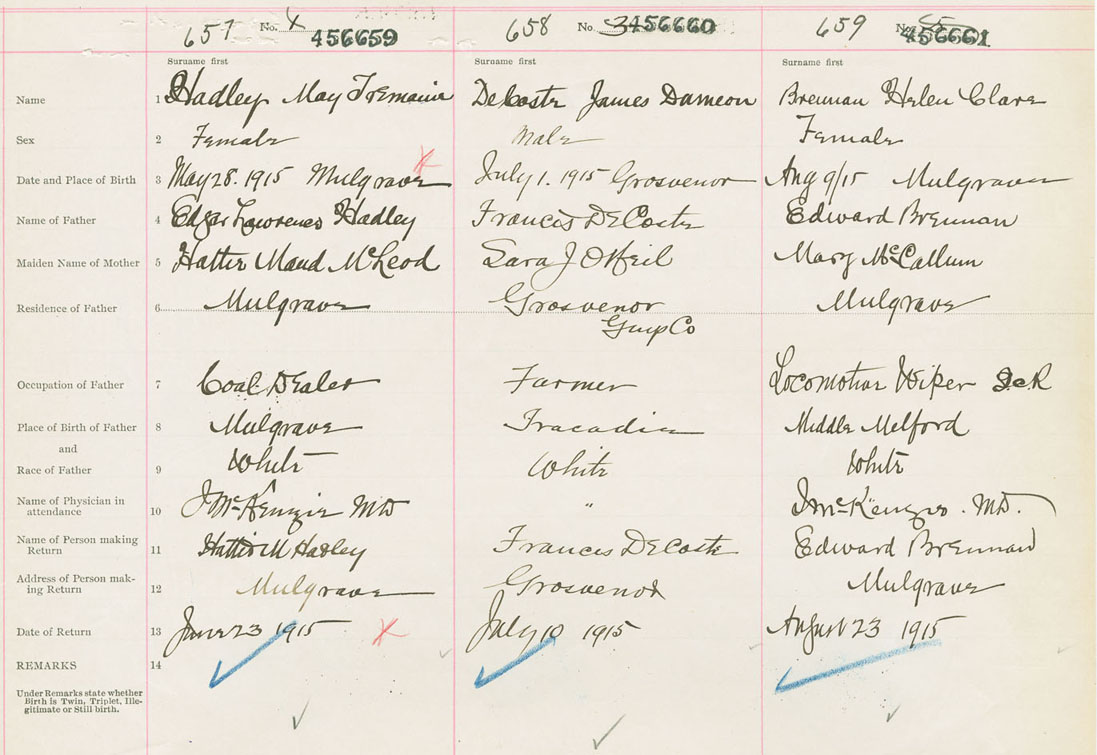 657 No. 456659 658 No. 3 456660 659 No. 456661
Surname first Surname first Surname first
Name 1 Hadley May Tremaine DeCoste James Dameon Brennan Helen Clare
Sex 2 Female Male Female
Date and Place of Birth 3 May 28. 1915 Mulgrave July 1. 1915 Grosvenor Aug 9/15 Mulgrave
Name of Father 4 Edgar Lawrence Hadley Francis DeCoste Edward Brennan
Maiden Name of Mother 5 Hattie Maud McLeod Sara J O'Neil Mary McCallum
Residence of Father 6 Mulgrave Grosvenor Mulgrave
Guys Co
Occupation of Father 7 Coal Dealer Farmer Locomotive Wiper
Place of Birth of Father 8 Mulgrave Tracadie Middle Melford
and
Race of Father 9 White White White
Name of Physician in
attendance 10 J McKenzie MD " J McKenzie. MD.
Name of Person making
Return 11 Hattie M Hadley Francis DeCoste Edward Brennan
Address of Person mak-
ing Return 12 Mulgrave Grosvenor Mulgrave
Date of Return 13 June 23 1915 July 10 1915 August 23 1915
REMARKS 14
Under Remarks state whether
Birth is Twin, Triplet, Ille-
gitimate or Still birth.